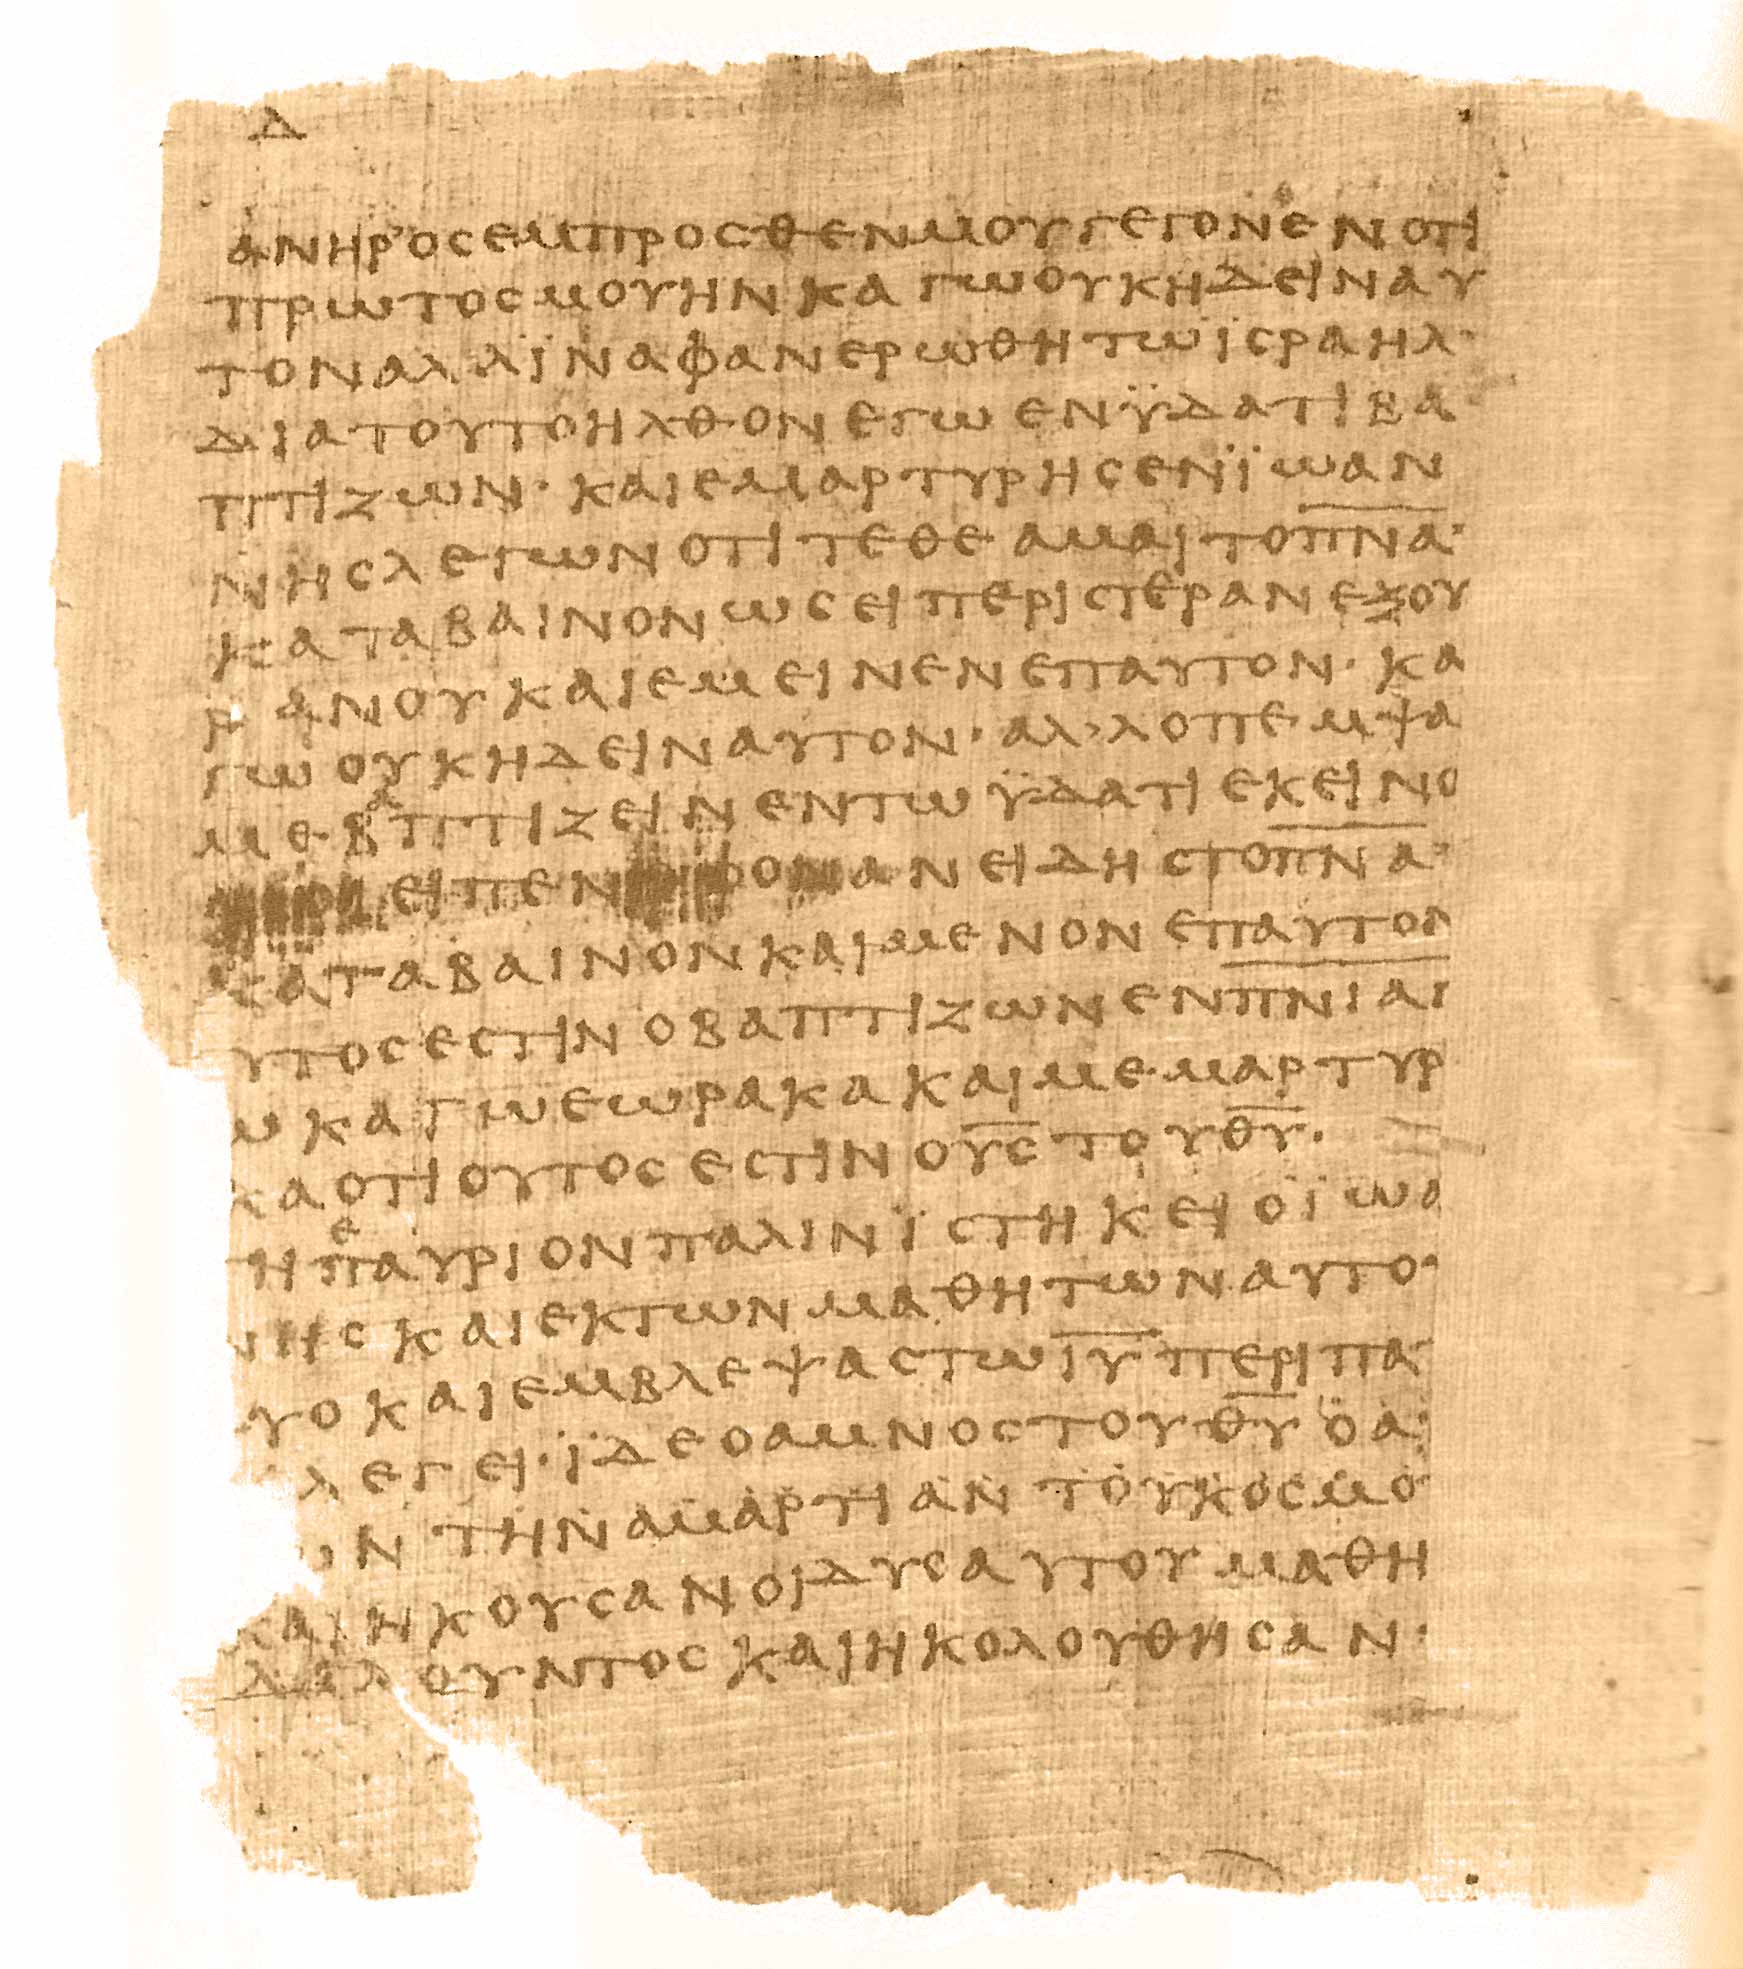 Δ
ΑΝΗΡ ΟΣ ΕΜΠΡΟΣΘΕΝ ΜΟΥ ΓΕΓΟΝΕΝ ΟΤΙ
ΠΡΩΤΟΣ ΜΟΥ ΗΝ ΚΑΓΩ ΟΥΚ ΗΔΕΙΝ ΑΥ
ΤΟΝ ΑΛΛ ΪΝΑ ΦΑΝΕΡΩΘΗ ΤΩ ΪΣΡΑΗΛ·
ΔΙΑ ΤΟΥΤΟ ΗΛΘΟΝ ΕΓΩ ΕΝ ΫΔΑΤΙ ΒΑ
ΠΤΙΖΩΝ· ΚΑΙ ΕΜΑΡΤΥΡΗΣΕΝ ΪΩΑΝ
ΝΗΣ ΛΕΓΩΝ ΟΤΙ ΤΕΘΕΑΜΑΙ ΤΟ Π̅Ν̅Α̅·
ΚΑΤΑΒΑΙΝΟΝ ΩΣΕΙ ΠΕΡΙΣΤΕΡΑΝ ΕΞ ΟΥ
ΡΑΝΟΥ ΚΑΙ ΕΜΕΙΝΕΝ ΕΠ ΑΥΤΟΝ· ΚΑ
ΓΩ ΟΥΚ ΗΔΕΙΝ ΑΥΤΟΝ· ΑΛΛ Ο ΠΕΜΨΑ
ΜΕ ΒΑΠΤΙΖΕΙΝ ΕΝ ΤΩ ΫΔΑΤΙ ΕΚΕΙΝΟ
ΕΙΠΕΝ ΟΝ ΑΝ ΕΙΔΗΣ ΤΟ Π̅Ν̅Α̅·
ΚΑΤΑΒΑΙΝΟΝ ΚΑΙ ΜΕΝΟΝ ΕΠ ΑΥΤΟΝ
ΥΤΟΣ ΕΣΤΙΝ Ο ΒΑΠΤΙΖΩΝ ΕΝ Π̅Ν̅Ι̅ ΑΓΙ
Ω ΚΑΓΩ ΕΩΡΑΚΑ ΚΑΙ ΜΕΜΑΡΤΥΡ
ΚΑ ΟΤΙ ΟΥΤΟΣ ΕΣΤΙΝ Ο Υ̅Σ̅ ΤΟΥ Θ̅Υ̅·
ΤΗ ΕΠΑΥΡΙΟΝ ΠΑΛΙΝ ΪΣΤΗΚΕΙ Ο ΪΩΑ
ΝΗΣ ΚΑΙ ΕΚ ΤΩΝ ΜΑΘΗΤΩΝ ΑΥΤΟ
ΥΟ ΚΑΙ ΕΜΒΛΕΨΑΣ ΤΩ Ι̅Υ̅ ΠΕΡΙΠΑ
ΛΕΓΕΙ· ΪΔΕ Ο ΑΜΝΟΣ ΤΟΥ Θ̅Υ̅ Ο Α
ΩΝ ΤΗΝ ΑΜΑΡΤΙΑΝ ΤΟΥ ΚΟΣΜΟ
ΚΑΙ ΗΚΟΥΣΑΝ ΟΙ ΔΥΟ ΑΥΤΟΥ ΜΑΘΗ
ΛΑΛΟΥΝΤΟΣ ΚΑΙ ΗΚΟΛΟΥΘΗΣΑΝ·